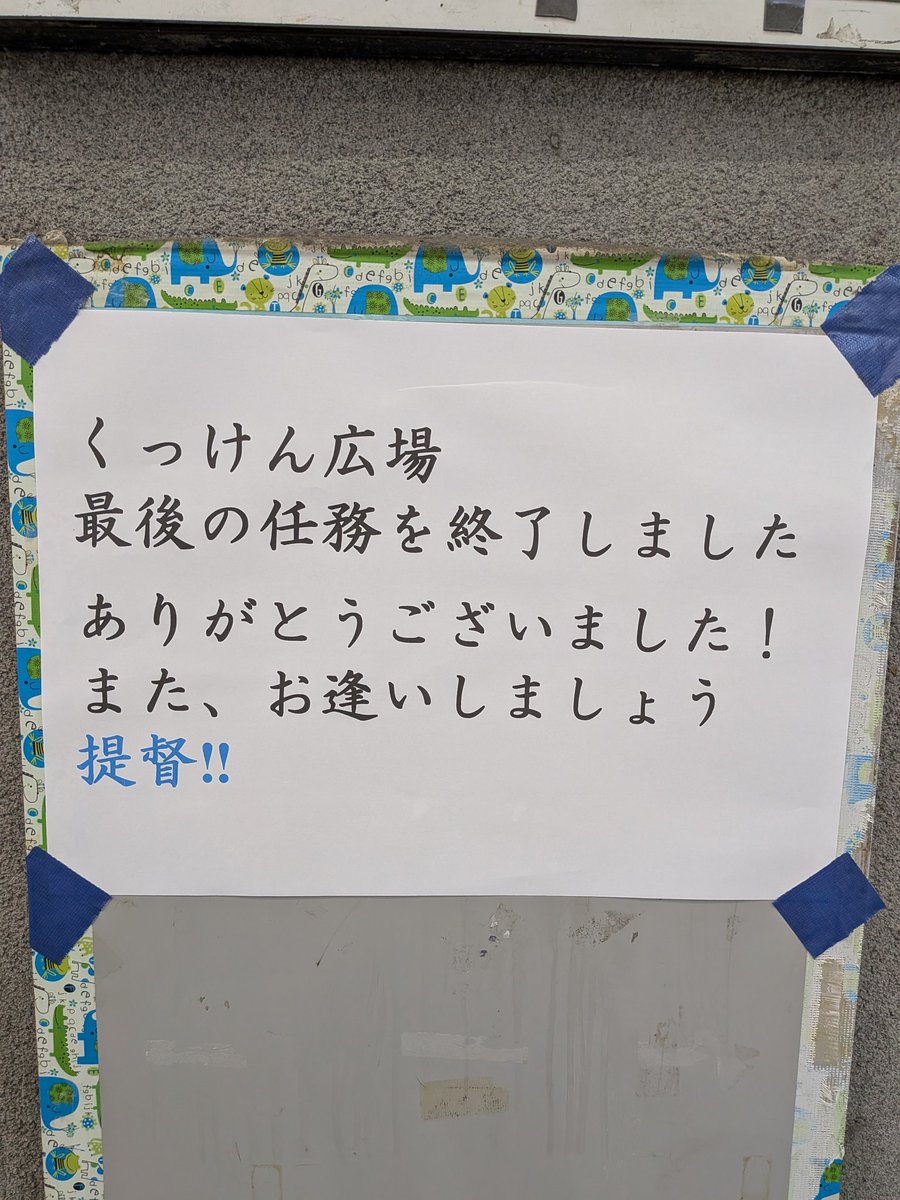 くっけん広場
最後の任務を終了しました
ありがとうございました！
また、お逢いしましょう
提督!!